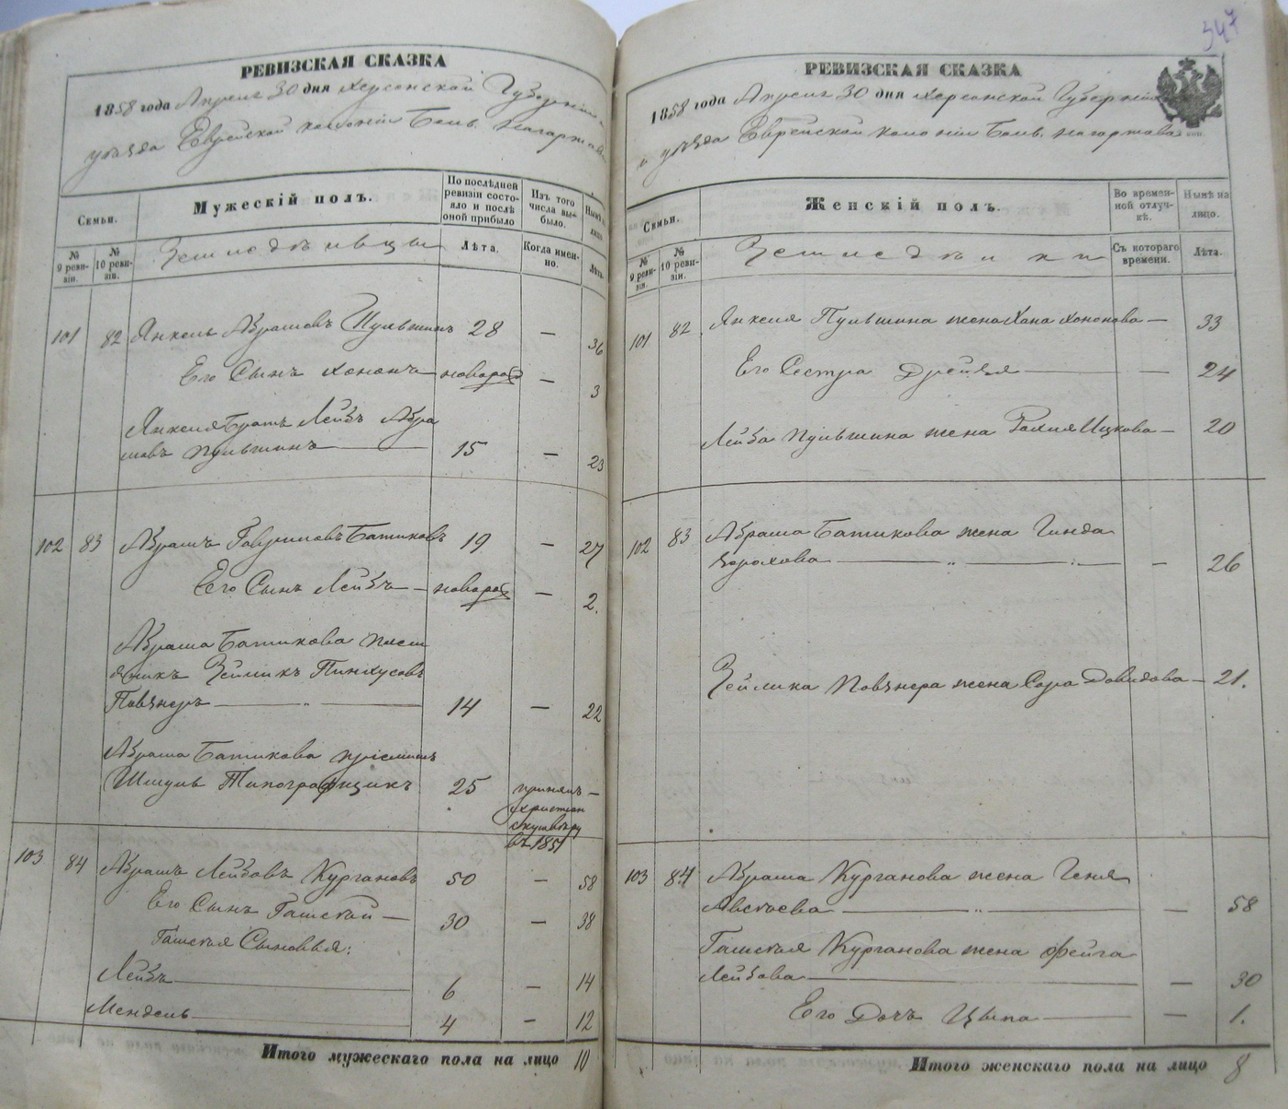 РЕВИЗСКАЯ СКАЗКА
1858 года Апреля 30 дня Херсонской Губерніи и
уѣзда Еврейской колоніи Боль. Нагартава
Семьи.
Мужескій полъ.
По послѣдней ревизіи состояло и послѣ оной прибыло
Изъ того числа выбыло.
Нынѣ на лицо
№ 9 ревизіи.
№ 10 ревизіи.
Земледѣльцы
Лѣта.
Когда именно.
Лѣта.
101 82 Янкель Абрамовъ Пульшинъ 28 — 36
Его Сынъ Хононъ — новорож — 3
Янкеля Братъ Лейбъ Абра
мовъ Пульшинъ — 15 — 23
102 83 Абрамъ Гавриловъ Батиковъ 19 — 27
Его Сынъ Лейбъ — новорож — 2.
Абрама Батикова
Зейликъ Пинхусовъ
Повѣнеръ — 14 — 22
Абрама Батикова пріемышъ
Шмуль Типографщикъ 25 принялъ —
христіан
скую вѣру
въ 1851
103 84 Абрамъ Лейбовъ Кургановъ 50 — 58
Его Сынъ Гашекай — 30 — 38
Гашекая Сыновья:
Лейбъ — 6 — 14
Мендель — 4 — 12
Итого мужескаго пола на лицо 10
347
РЕВИЗСКАЯ СКАЗКА
1858 года Апреля 30 дня Херсонской Губерніи
и уѣзда Еврейской колоніи Боль. Нагартава
Семьи.
Женскій полъ.
Во временной отлучкѣ.
Нынѣ на лицо.
№ 9 ревизіи.
№ 10 ревизіи.
Земледѣлки
Съ котораго времени.
Лѣта.
101 82 Янкеля Пульшина жена Хана Хононова — 33
Его Сестра Дрейзя — — 24
Лейба Пульшина жена Рахия Ицкова — 20
102 83 Абрама Батикова жена Гинда
Борохова — — 26
Зейлика Повѣнера жена Сора Довидова — 21.
103 84 Абрама Курганова жена Геня
Авсеева — — 58
Гашекая Курганова жена Фейга
Лейбова — — 30
Его Дочь Цыпа — — 1.
Итого женскаго пола на лицо 8